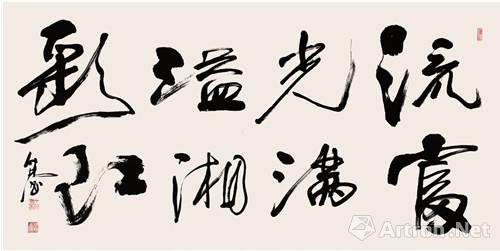 流光溢彩
富满湘江
Artron.Net